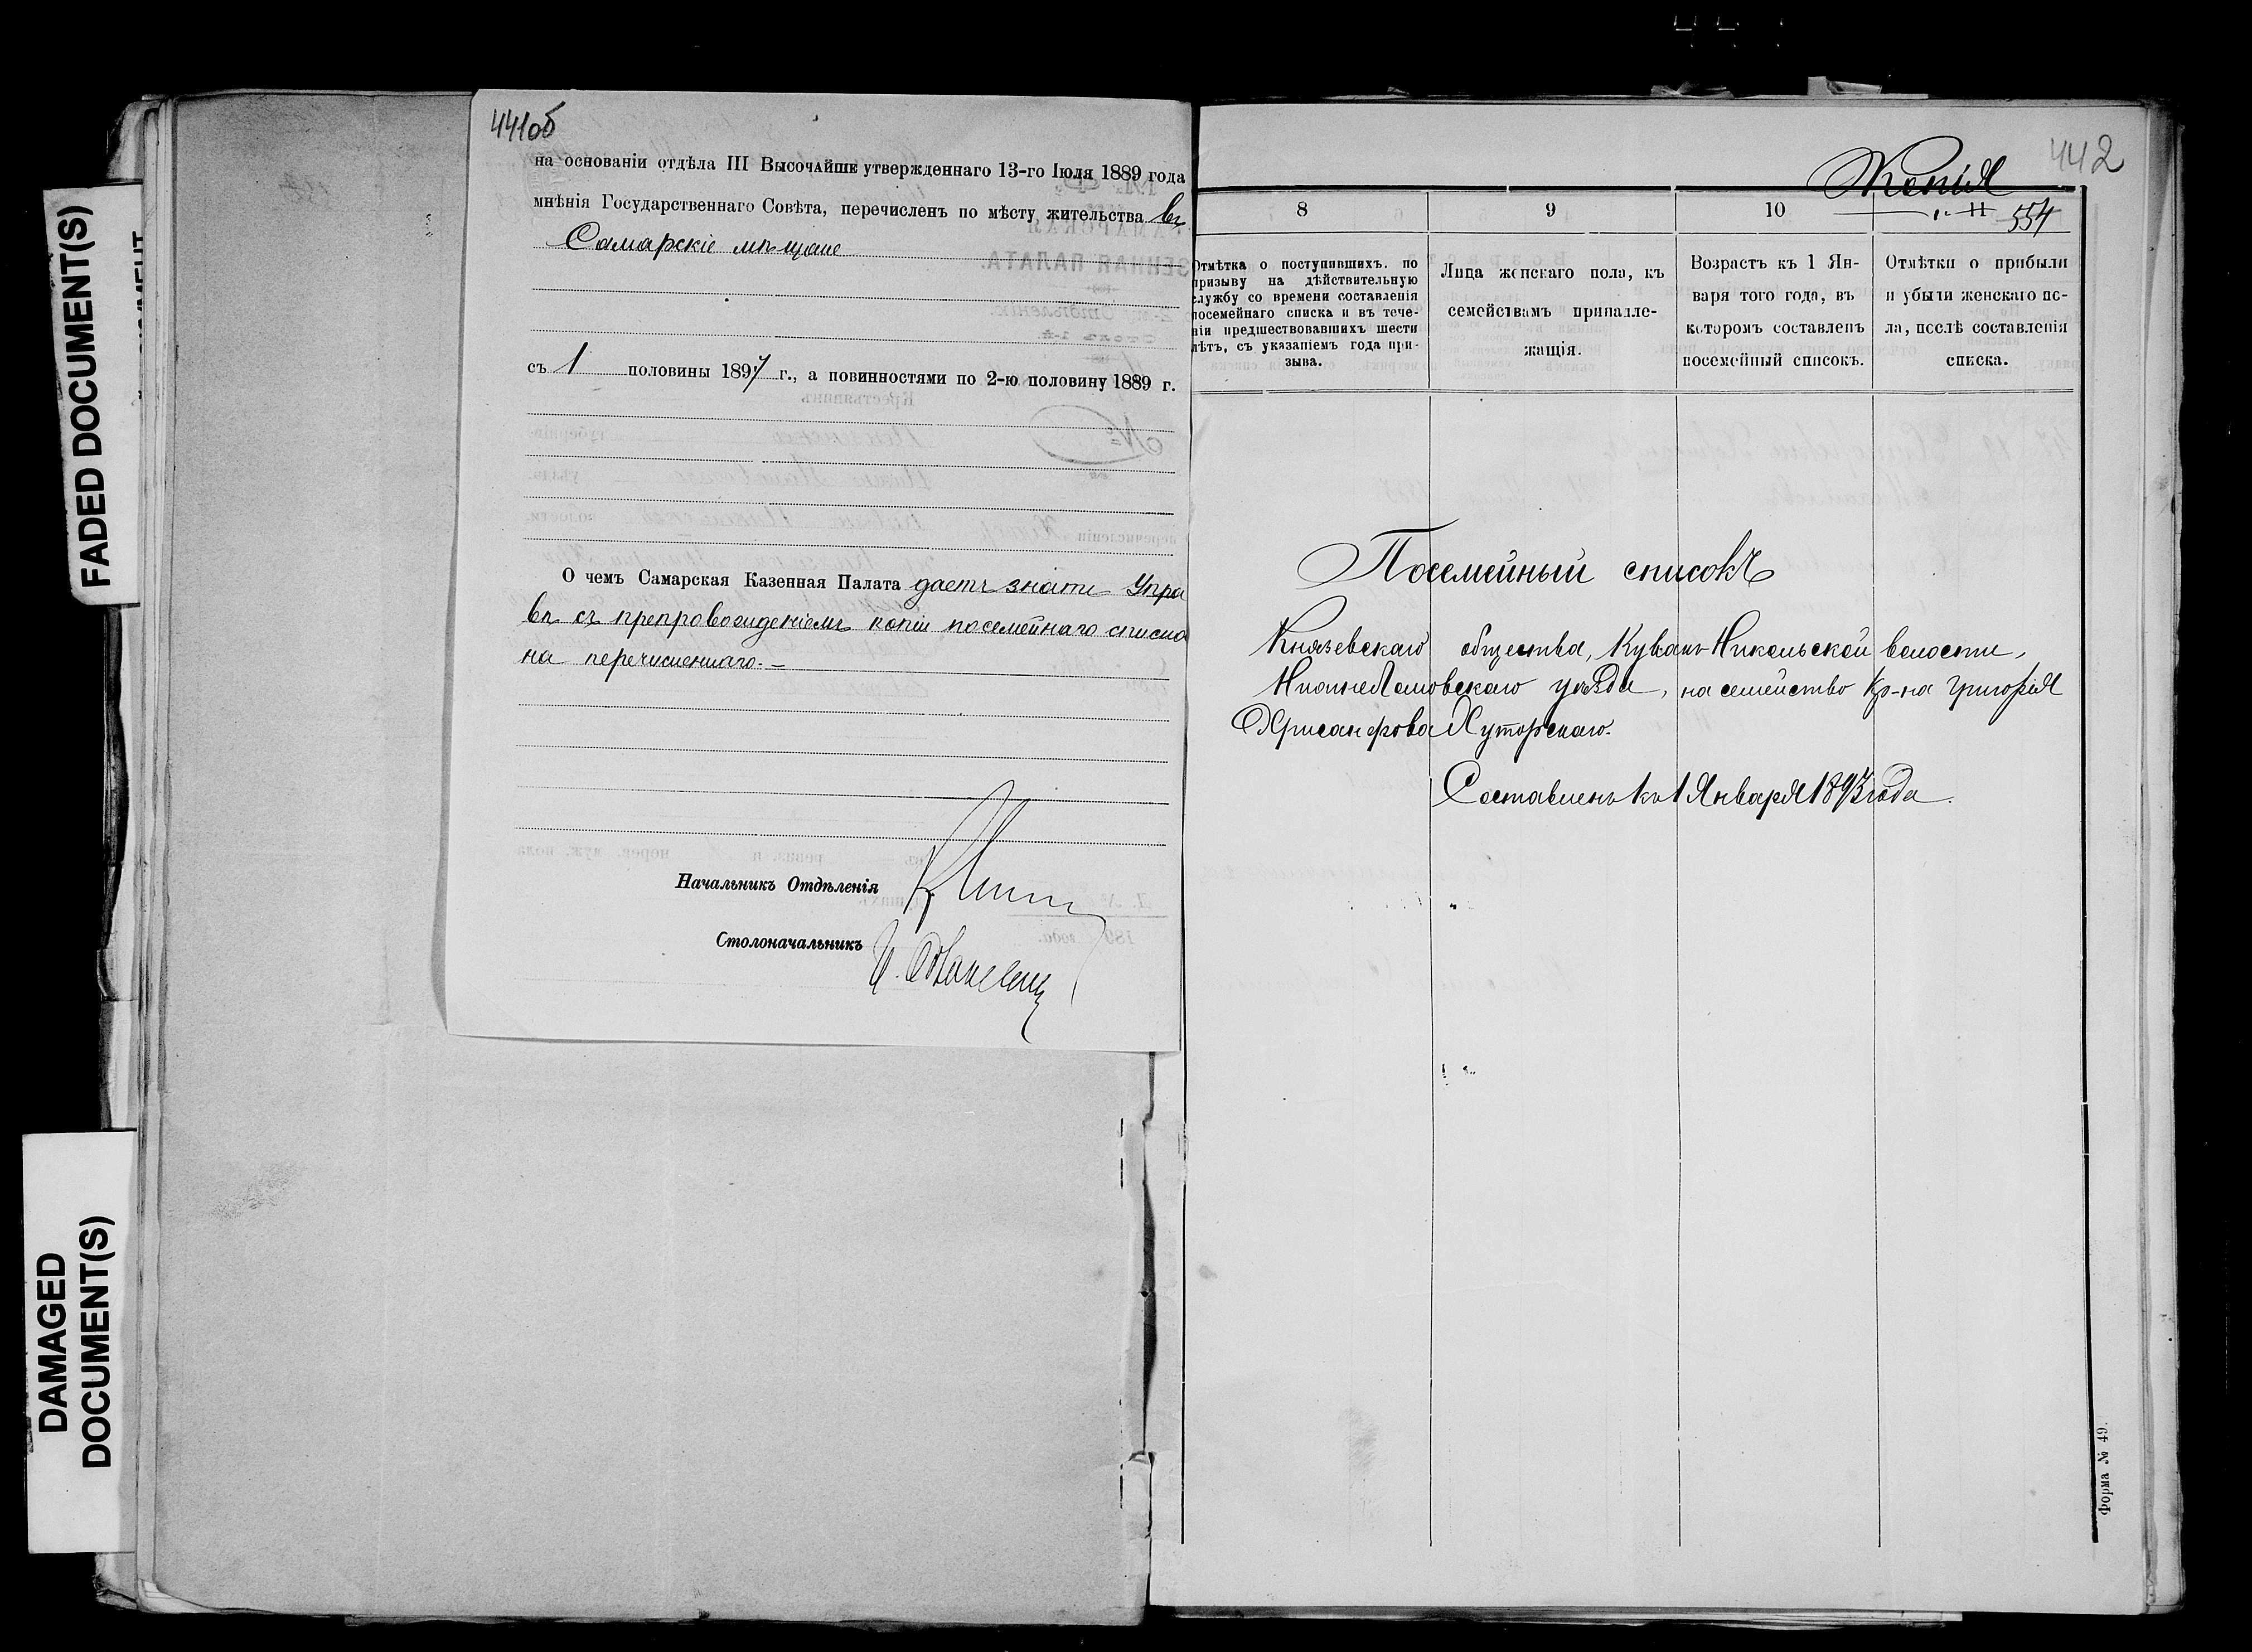 FADED DOCUMENT(S)
DAMAGED
DOCUMENT(S)
441об
на основаніи отдѣла III Высочайше утвержденнаго 13-го Іюля 1889 года
мнѣнія Государственнаго Совѣта, перечисленъ по мѣсту жительства въ
Самарскіе мѣщане
съ 1 половины 1897 г., а повинностями по 2-ю половину 1889 г.
О чемъ Самарская Казенная Палата даетъ знать Упра
вѣ съ препровожденіемъ копіи посемейнаго списка
на перечисленнаго.
Начальникъ Отдѣленія
Столоначальникъ
442
Копія
8 9 10 11
554
Отмѣтка о поступившихъ. по
призыву на дѣйствительную
службу со времени составленія
посемейнаго списка и въ тече-
ніи предшествовавшихъ шести
лѣтъ, съ указаніемъ года при-
зыва.
Лица женскаго пола, къ
семействамъ принадле-
жащія.
Возрастъ къ 1 Ян-
варя того года, въ
которомъ составленъ
посемейный списокъ.
Отмѣтки о прибыли
и убыли женскаго по-
ла, послѣ составленія
списка.
Посемейный списокъ
Князевскаго общества, Кувакъ-Никольской волости,
НижнеЛомовскаго уѣзда, на семейство Кр-на Григорія
Хрисанфова Хуторскаго.
Составленъ къ 1 Января 1893 года.
Форма № 49.